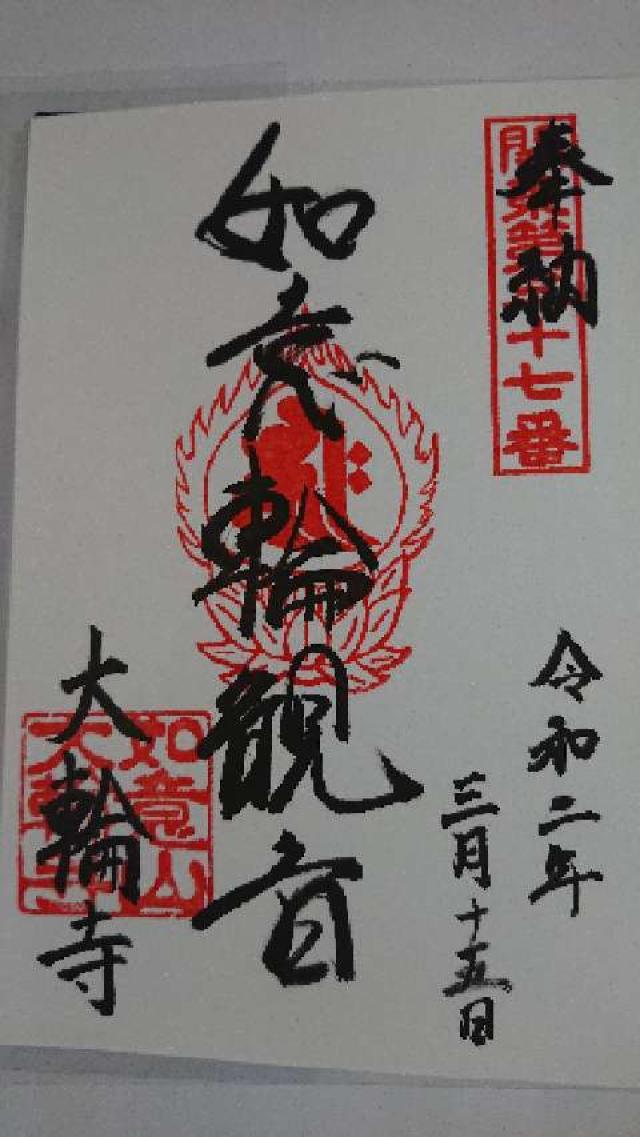 奉納
十七番
令和二年
三月十五日
如意輪観音
大輪寺
如意山
大輪寺